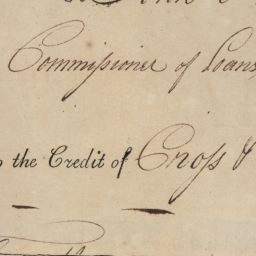 Commissioner of Loans
the Credit of Cross &